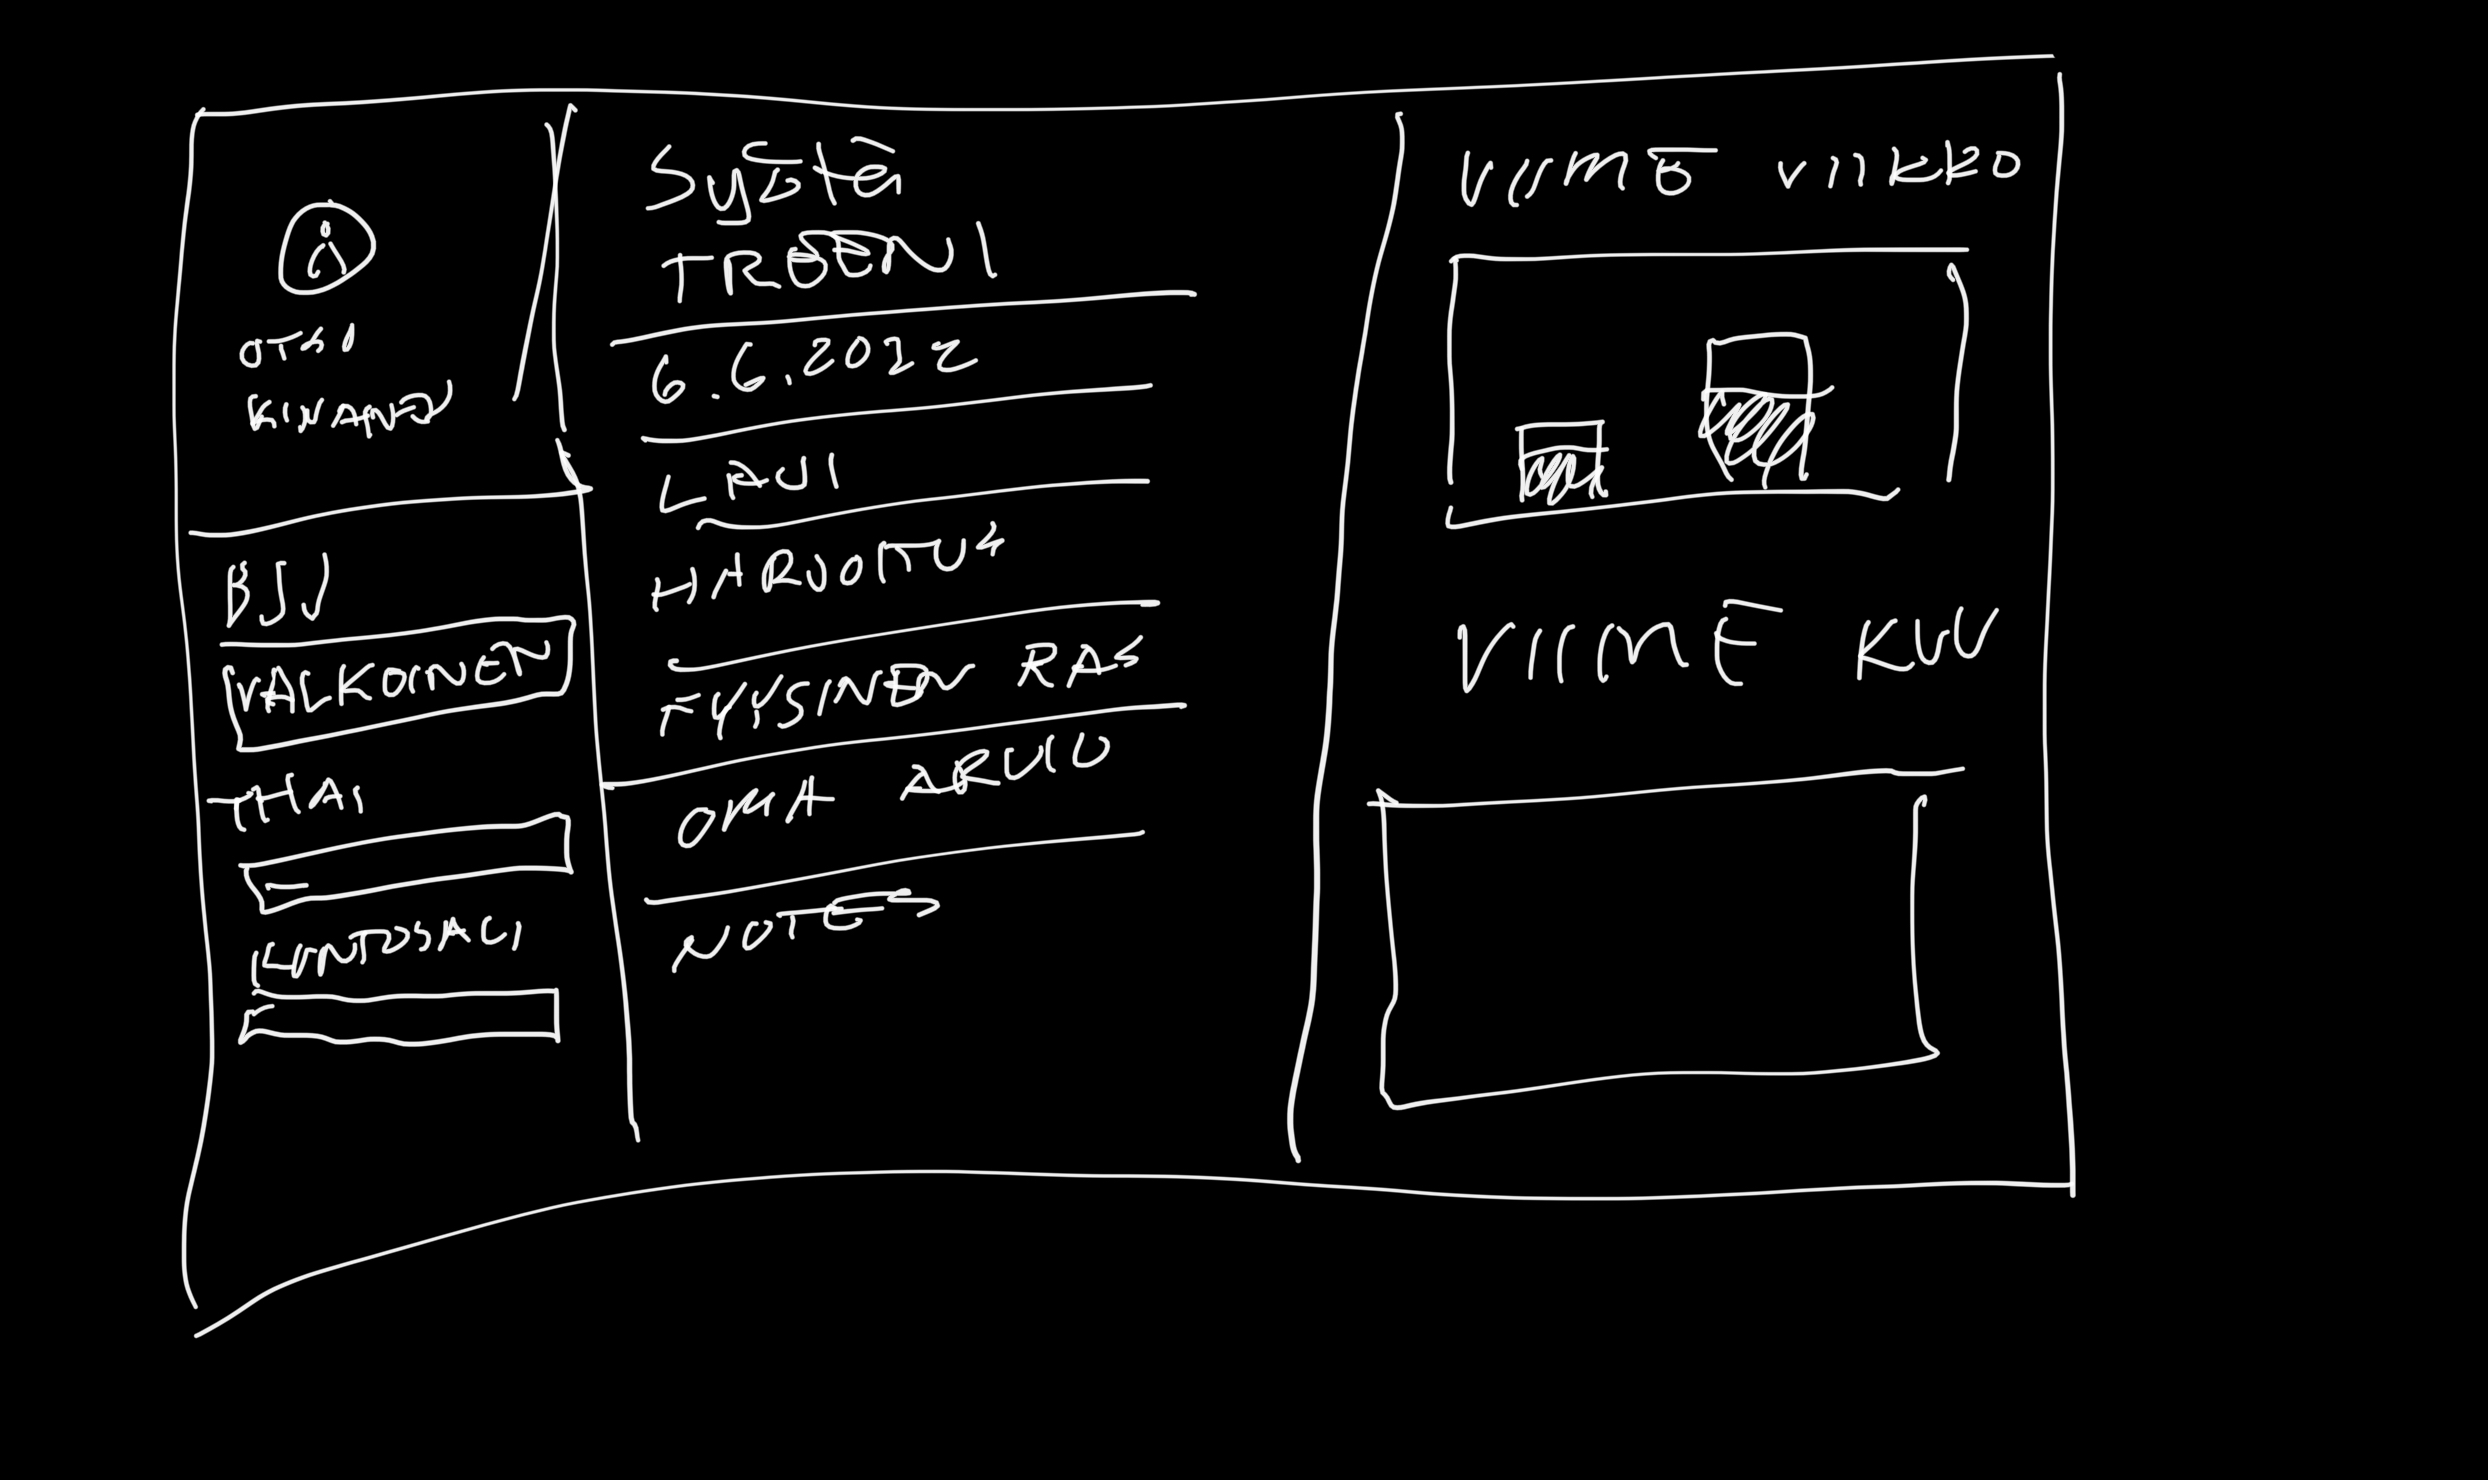 OTSO
KINANEN
BJJ
VALKOINEN
THAI
KUNTOSALI
Syötä
TREENI
6.6.2012
LAJI
HARJOITUS
FYYSINEN RAS
OMA ARVIO
NOTES
VIIME VIIKKO
VIIME KUU